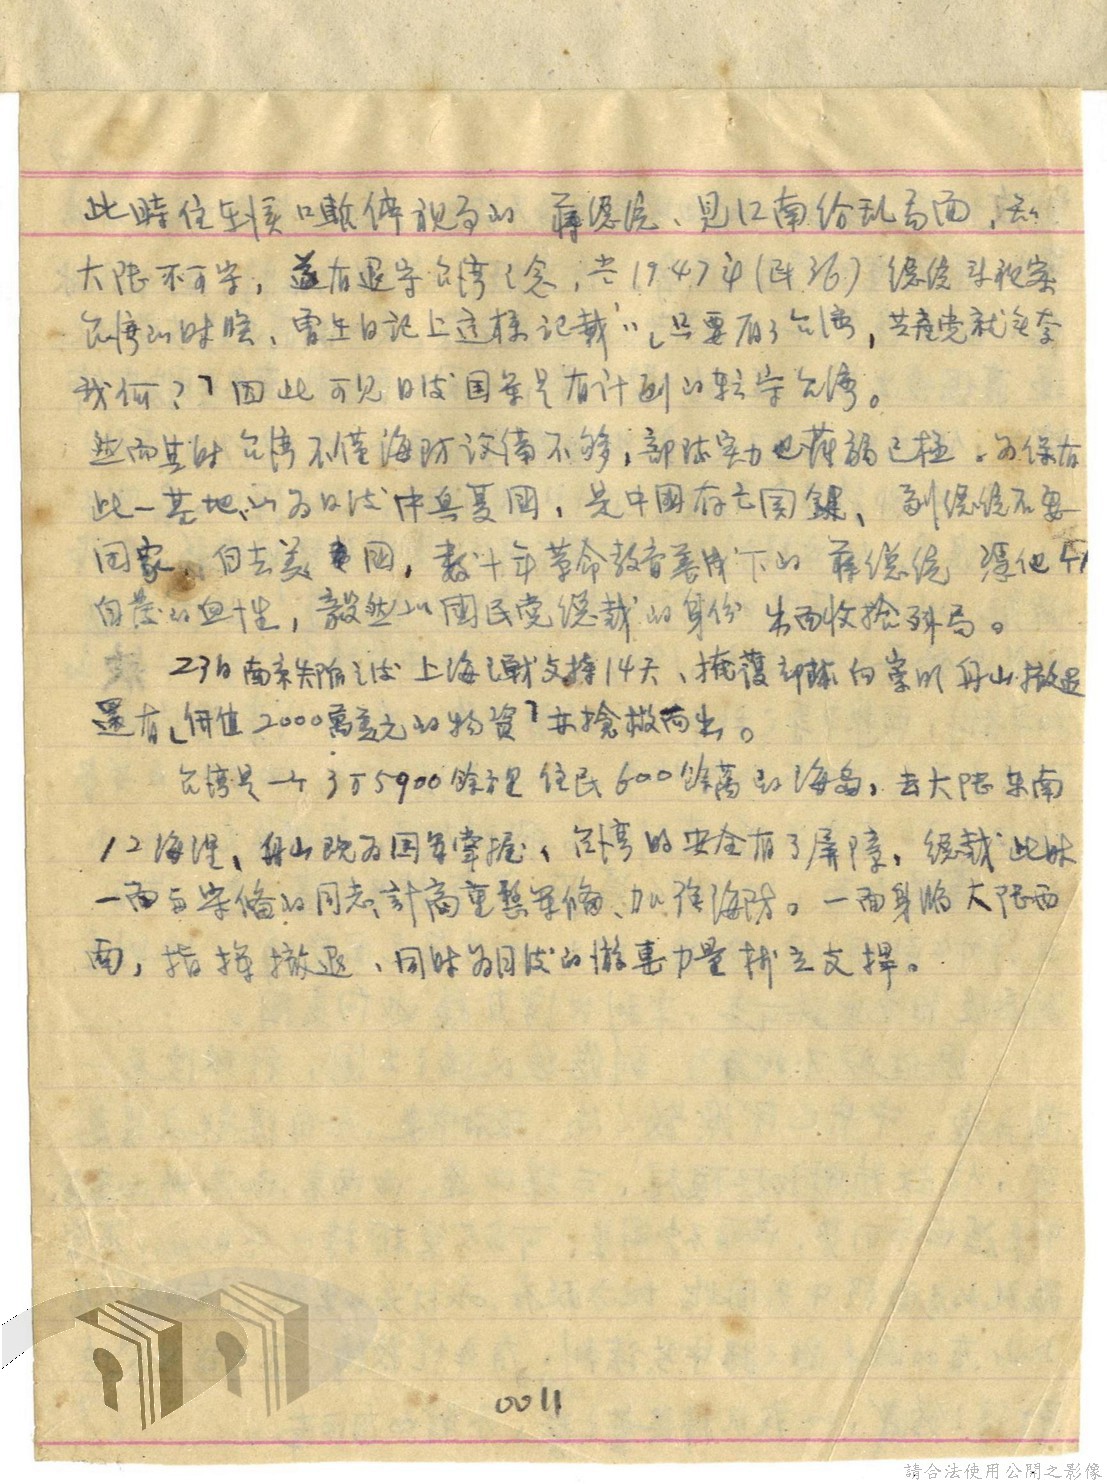 此時住在溪口靜待視局的 蔣總統、見江南紛乱局面，知
大陸不可守，遂有退守台湾之念，当1947年(民36) 總統来視察
台湾的时候、曾在日記上這樣記載"「只要有了台湾，共產党就无奈
我何？」因此可见日後国軍是有计劃的轉守台湾。
然而其时 台湾不僅海防设備不够，部隊实力也薄弱已極。为保有
此一基地、以为日後中兴复國，是中國存亡関鍵、副總統不要
国家、自去美國，数十年革命教育養成下的 蔣總統 憑他
自發的血性，毅然以國民党總裁的身份 出面收拾殘局。
23日南京失陷之後 上海之戰支撐14天、掩護部隊向崇明舟山撤退
還有「価值2000萬美元的物資」亦搶撤而出。
台湾是一个3万5900餘方里 住民600餘萬的海島，去大陸东南
12海浬、舟山既为国军掌握、台湾的安全有了屏障，總裁此时
一面与守備的同志計商重整军備、加强海防。一面身臨大陸西
南，指揮撤退、同时为日後的游击力量树立支撑。
0011
請合法使用公開之影像